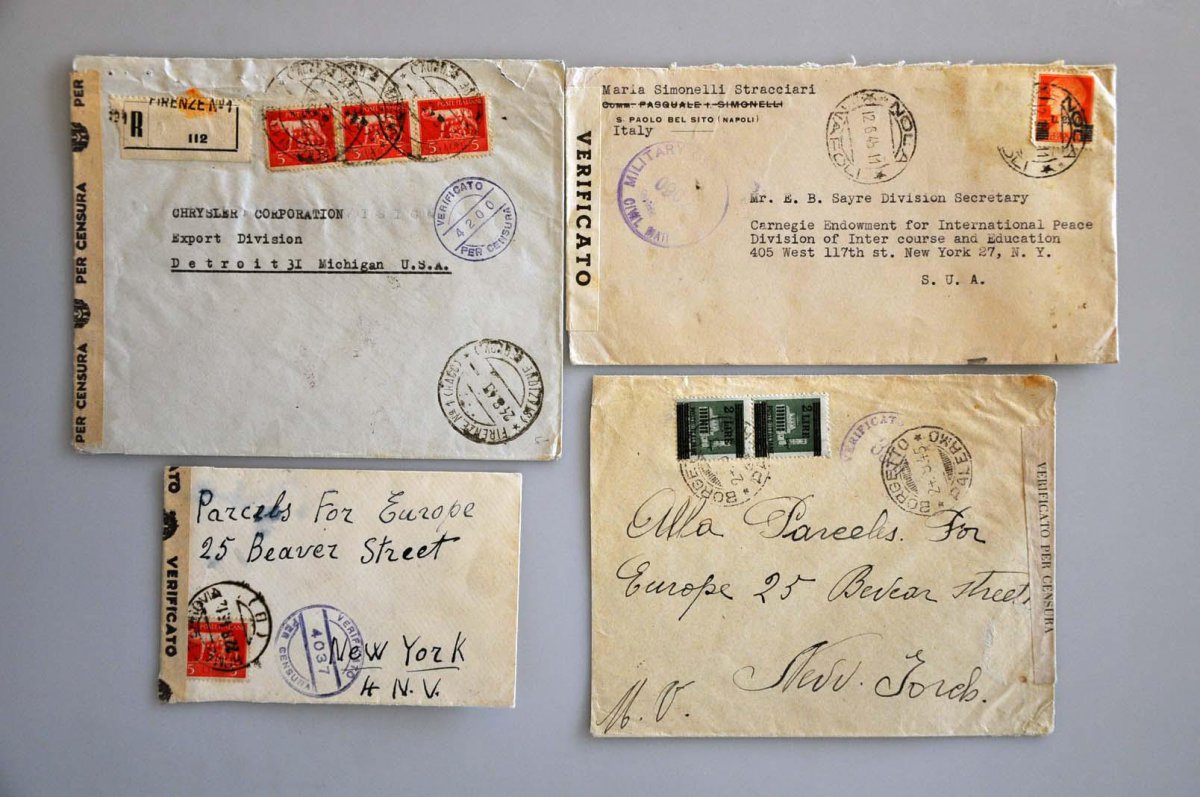 PER CENSURA
PER CENSURA
PER CENSURA
FIRENZE No 1
R
112
5
5
5
VERIFICATO
4200
PER CENSURA
CHRYSLER CORPORATION
Export Division
Detroit 31 Michigan U.S.A.
FIRENZE No 1 (RACC.)
VERIFICATO
Maria Simonelli Stracciari
Comm. PASQUALE I. SIMONELLI
S. PAOLO BEL SITO (NAPOLI)
Italy
MILITARY
CIVIL MAIL
NOLA
12 6 45 11
NOLA
Mr. E. B. Sayre Division Secretary
Carnegie Endowment for International Peace
Division of Inter course and Education
405 West 117th st. New York 27, N. Y.
S. U. A.
VERIFICATO
Parcels For Europe
25 Beaver Street
New York
4 N.V.
5
VERIFICATO
4037
PER CENSURA
2 LIRE
2 LIRE
VERIFICATO
BORGETTO
PALERMO
Alla Parcels. For
Europe 25 Bevear street
New. Jorch.
N. V.
VERIFICATO PER CENSURA